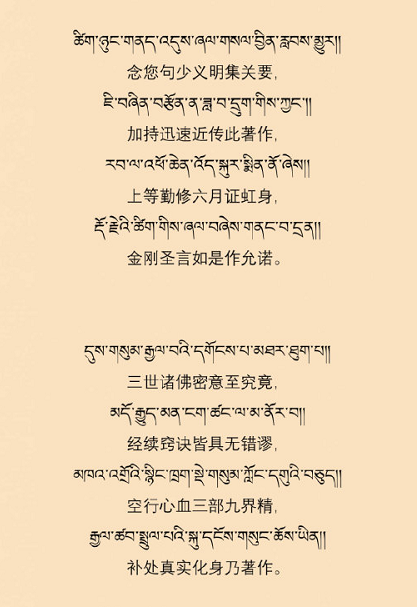 ཚིག་ཉུང་གནད་འདུས་ཞལ་གསལ་བྱིན་རླབས་མྱུར།།
念您句少义明集关要,
ཇི་བཞིན་བརྩོན་ན་ཟླ་བ་དྲུག་གིས་ཀྱང་།།
加持迅速近传此著作,
རབ་ལ་འཕོ་ཆེན་འོད་སྐུར་སྨིན་ནོ་ཞེས།།
上等勤修六月证虹身,
རྡོ་རྗེའི་ཚིག་གིས་ཞལ་བཞེས་གནང་བ་དྲན།།
金刚圣言如是作允诺。
དུས་གསུམ་རྒྱལ་བའི་དགོངས་པ་མཐར་ཐུག་པ།།
三世诸佛密意至究竟,
མདོ་རྒྱུད་མན་ངག་ཚང་ལ་མ་ནོར་བ།།
经续窍诀皆具无错谬,
མཁའ་འགྲོའི་སྙིང་ཁྲག་སྡེ་གསུམ་ཀློང་དགུའི་བཅུད།།
空行心血三部九界精,
རྒྱལ་ཚབ་སྤྲུལ་པའི་སྐུ་དངོས་གསུང་ཆོས་ཡིན།།
补处真实化身乃著作。